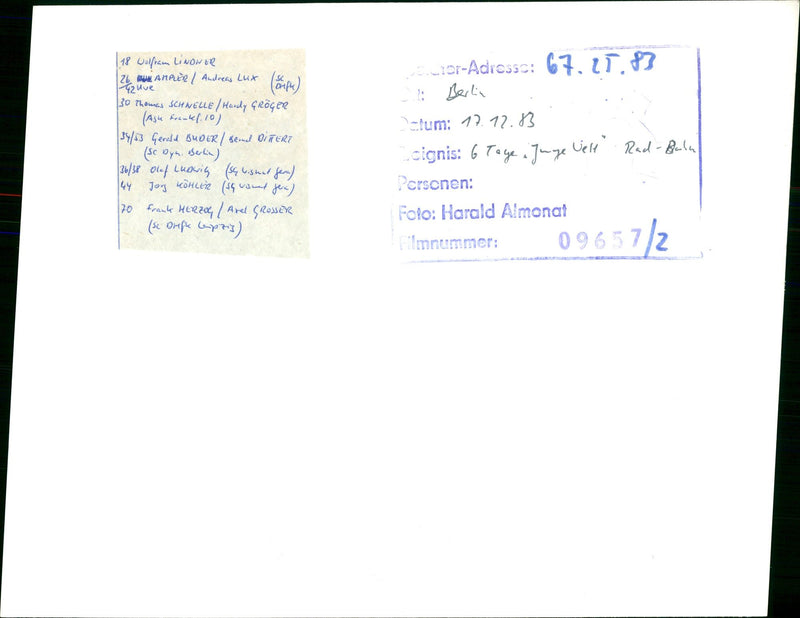 18 Wolfram LINDNER
26/42 Uwe AMPLER / Andreas LUX (SC DHfK)
30 Thomas SCHNELLE / Hardy GRÖGER
(ASK Frankf. (O)
34/53 Gerald BUDER / Bernd DITTERT
(SC Dyn. Berlin)
36/38 Olaf LUDWIG (SG Wismut Gera)
44 Jörg KÖHLER (SG Wismut Gera)
70 Frank HERZOG / Axel GROSSER
(SC DHfK Leipzig)
-Adresse: 67. 21. 83
Berlin
Datum: 17.12.83
eignis: 6 Tage "Junge Welt" Rad-Bahn
Personen:
Foto: Harald Almonat
Filmnummer: 09657/2